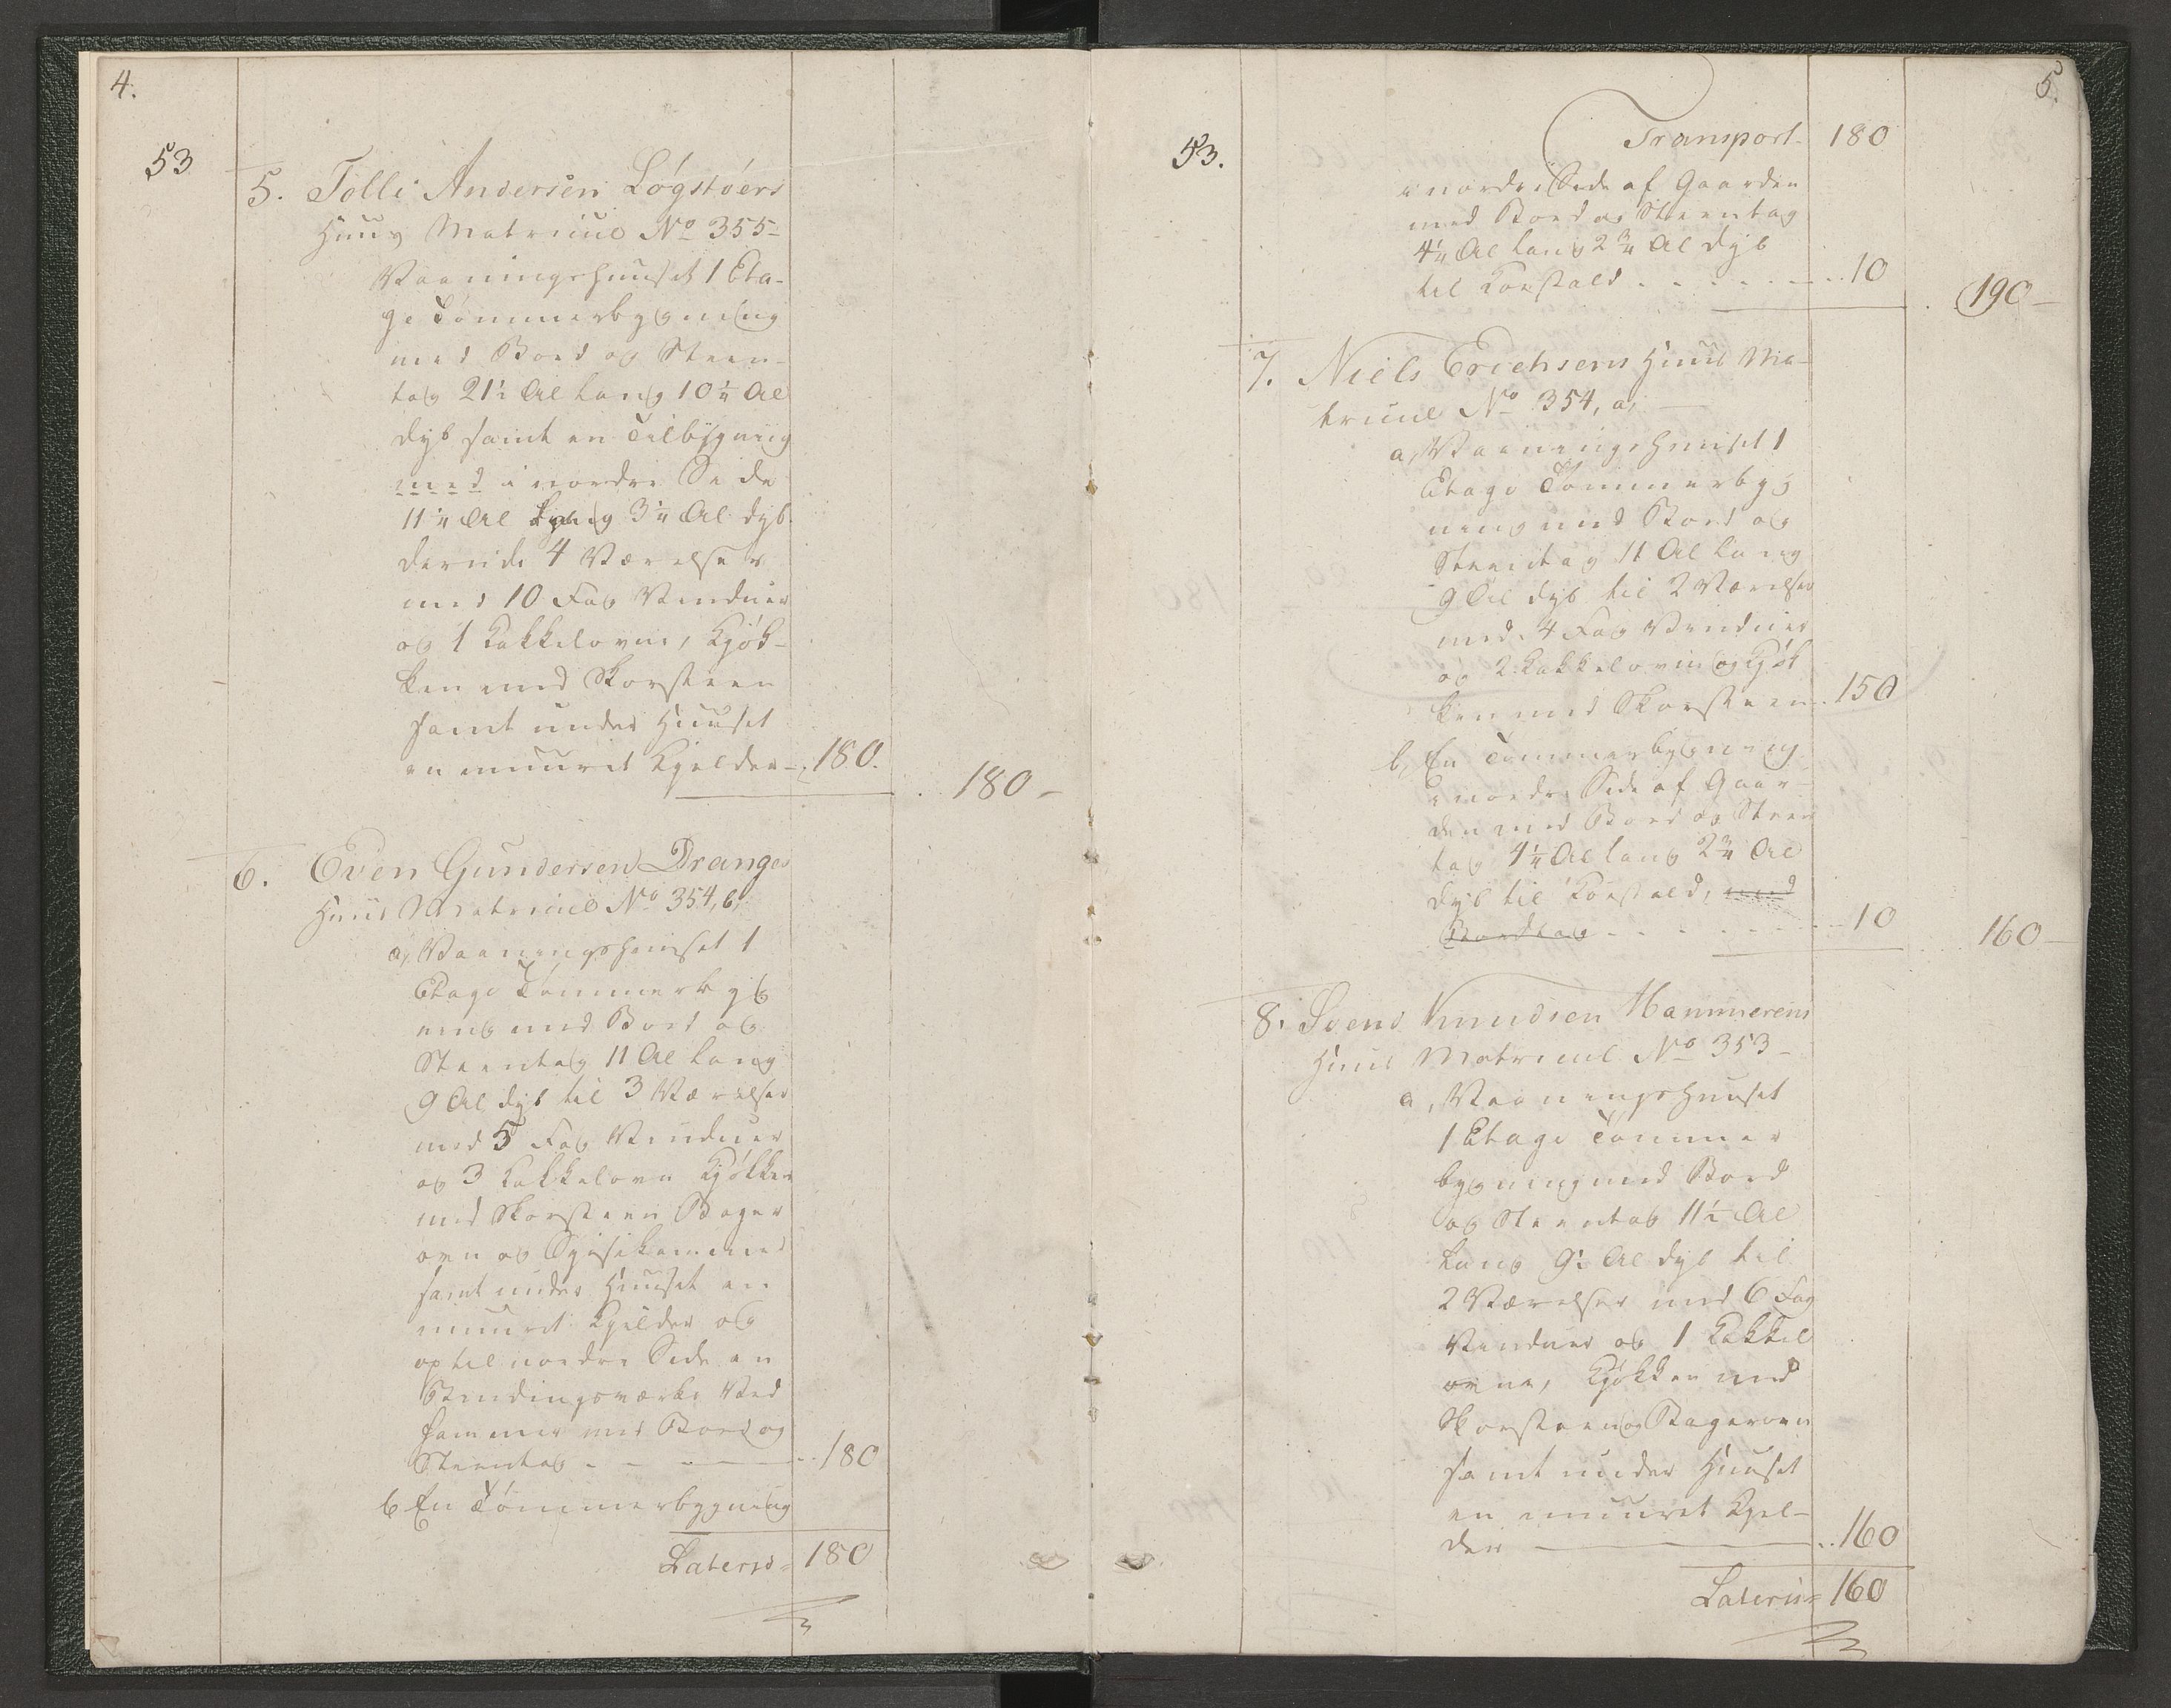 4.
53
5. Tolli Andersen Løgstøers
Huus Matricul No 355-
Vaaningshuuset 1 Eta-
ge Tømmerbygning
med Bord og Steen-
tag 21½ Al lang 10¼ Al
dyb samt en Tilbÿgning
med i nordre Side
11¼ Al Lang 3¼ Al dyb.
derudi 4 Værelser
med 10 Fag Vinduer
og 1 Kakkelovne, Kjøk-
ken med Skorsteen
samt under Huuset
en muuret Kjelder - 180.
180 -
6. Even Gundersen Dranges
Huus Matricul No 354, b,
a, Vaaningshuuset 1
Etage Tømmerbyg
ning med Bord og
Steentag 11 Al Lang
9 Al dyb til 3 Værelser
med 5 Fag Vinduer
og 3 Kakkelovn Kjøkken
med Skorsteen Bager
ovn og Spisekammer
samt under Huuset en
muuret Kjelder og
op til nordre Side en
Bindingsværks Ved
Kammer med Bord og
Steentag - - - 180
b En Tømmerbygning
Lateris = 180
5.
53.
Transport - 180
i nordre Side af Gaarden
med Bord og Steentag
4¼ Al lang 2¾ Al dyb
til Koestald - - - 10
190 -
7. Niels Erichsens Huus Ma-
tricul No 354, a,
a, Vaaningshuuset 1
Etage Tømmerbyg
ning med Bord og
Steentag 11 Al lang
9 Al dyb til 2 Værelser
med 4 Fag Vinduer
og 2 Kakkelovn og Kjøk
ken med Skorsteen 150
b, En Tømmerbygning
i nordre Side af Gaar-
den med Bord og Steen
tag 4¼ Al lang 2¾ Al
dyb til Koestald, med
Bordtag - - - 10
160 -
8. Svend Knudsen Hammerens
Huus Matricul No 353 -
a, Vaaningshuuset
1 Etage Tømmer
bygning med Bord
og Steentag 11½ Al
Lang 9½ Al dyb til
2 Værelser med 6 Fag
Vinduer og 1 Kakkel
ovne, Kjøkken med
Skorsteen og Bagerovn
samt under Huuset
en muuret Kjel-
der - 160
Lateris = 160